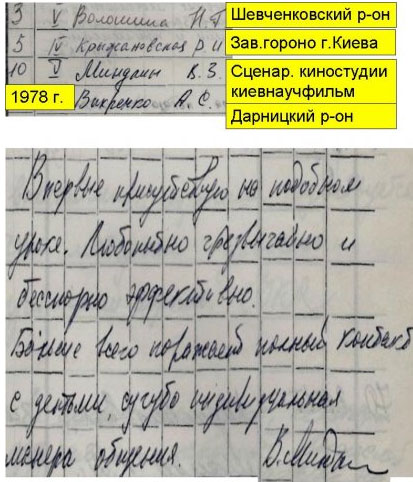 3 V Волошина Н.Г. Шевченковский р-он
5 IV Крыжановская Р.И Зав.гороно г.Киева
10 V Миндлин В.З. Сценар. киностудии
киевнаучфильм
1978 г. Вихренко А.С. Дарницкий р-он
Впервые присутствую на подобном
уроке. Любопытно чрезвычайно и
бесспорно эффективно.
Больше всего поражает полный контакт
с детьми, сугубо индивидуальная
манера общения. В.Миндл